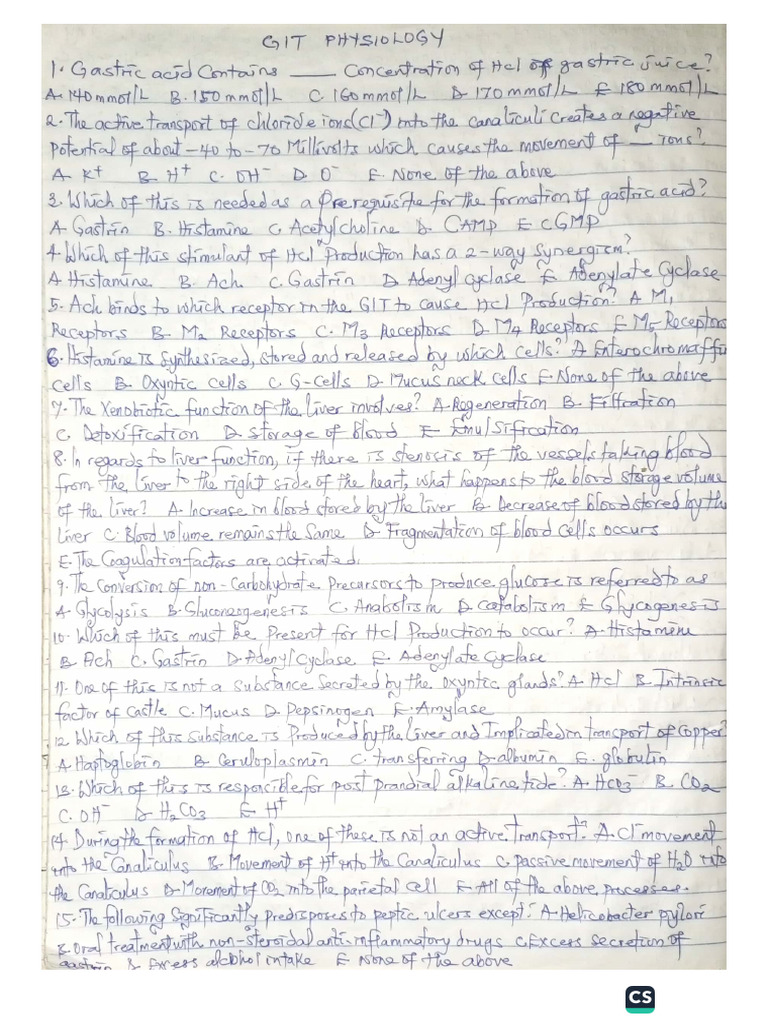 GIT PHYSIOLOGY
1. Gastric acid Contains ____ Concentration of Hcl of gastric juice?
A. 140mmol/L B. 150mmol/L C. 160mmol/L D. 170mmol/L E 180mmol/L
2. The active transport of chloride ions (Cl⁻) into the canaliculi creates a negative
Potential of about -40 to -70 Millivolts which causes the movement of __ ions?
A K⁺ B. H⁺ C. OH⁻ D. O⁻ E. None of the above
3. Which of this is needed as a Prerequisite for the formation of gastric acid?
A Gastrin B. Histamine C. Acetylcholine D. CAMP E cGMP
4. Which of this stimulant of Hcl Production has a 2-way Synergism?
A Histamine B. Ach C. Gastrin D Adenyl cyclase E Adenylate Cyclase
5. Ach binds to which receptor in the GIT to cause Hcl Production? A M₁
Receptors B. M₂ Receptors C. M₃ Receptors D. M₄ Receptors E M₅ Receptors
6. Histamine is Synthesized, stored and released by which cells? A Enterochromaffin
cells B. Oxyntic cells C. G-Cells D. Mucus neck cells E. None of the above
7. The Xenobiotic function of the liver involves? A. Regeneration B. Filtration
C. Detoxification D. Storage of Blood E Emulsification
8. In regards to liver function, if there is stenosis of the vessels taking blood
from the liver to the right side of the heart, what happens to the blood storage volume
of the liver? A. Increase in blood stored by the liver B. Decrease of blood stored by the
liver C. Blood volume remains the Same D. Fragmentation of blood cells occurs
E. The Coagulation factors are activated.
9. The Conversion of non-Carbohydrate Precursors to produce glucose is referred to as
A. Glycolysis B. Gluconeogenesis C. Anabolism D. Catabolism E Glycogenesis
10. Which of this must Be Present for Hcl Production to occur? A. Histamine
B. Ach C. Gastrin D. Adenyl Cyclase E. Adenylate Cyclase
11. One of this is not a Substance Secreted by the Oxyntic glands? A. Hcl B. Intrinsic
factor of Castle C. Mucus D. Pepsinogen E. Amylase
12. Which of this Substance is Produced by the liver and Implicated in transport of Copper?
A. Haptoglobin B Ceruloplasmin C. transferring D. albumin E. globulin
13. Which of this is responsible for post prandial alkaline tide? A. HCO₃⁻ B. CO₂
C. OH⁻ D. H₂CO₃ E H⁺
14. During the formation of Hcl, one of these is not an active Transport? A. Cl⁻ movement
into the Canaliculus B. Movement of H⁺ into the Canaliculus C. passive movement of H₂O into
the Canaliculus D. Movement of CO₂ into the parietal cell E. All of the above processes.
15. The following Significantly predisposes to peptic ulcers except? A. Helicobacter pylori
B. Oral treatment with non-steroidal anti-inflammatory drugs C. Excess secretion of
gastrin D. Excess alcohol intake E None of the above
CS